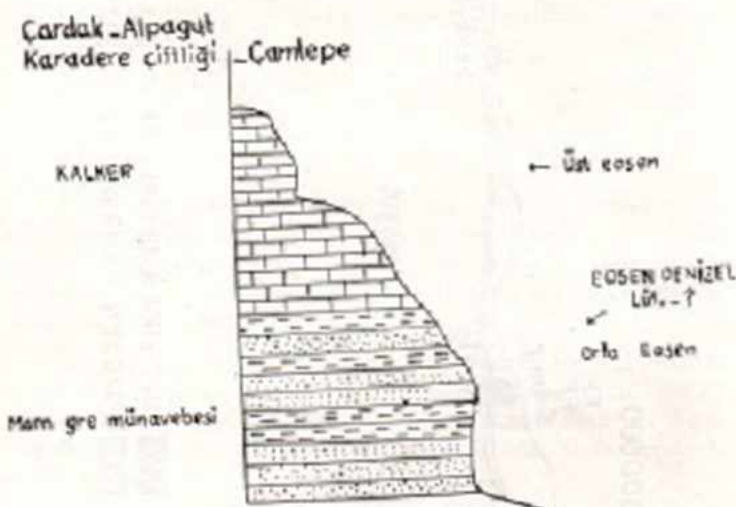 Çardak - Alpagut
Karadere çiftliği - Çamtepe
KALKER
← Üst eosen
EOSEN DENİZEL
Lüt. - ?
Orta Eosen
Marn gre münavebesi